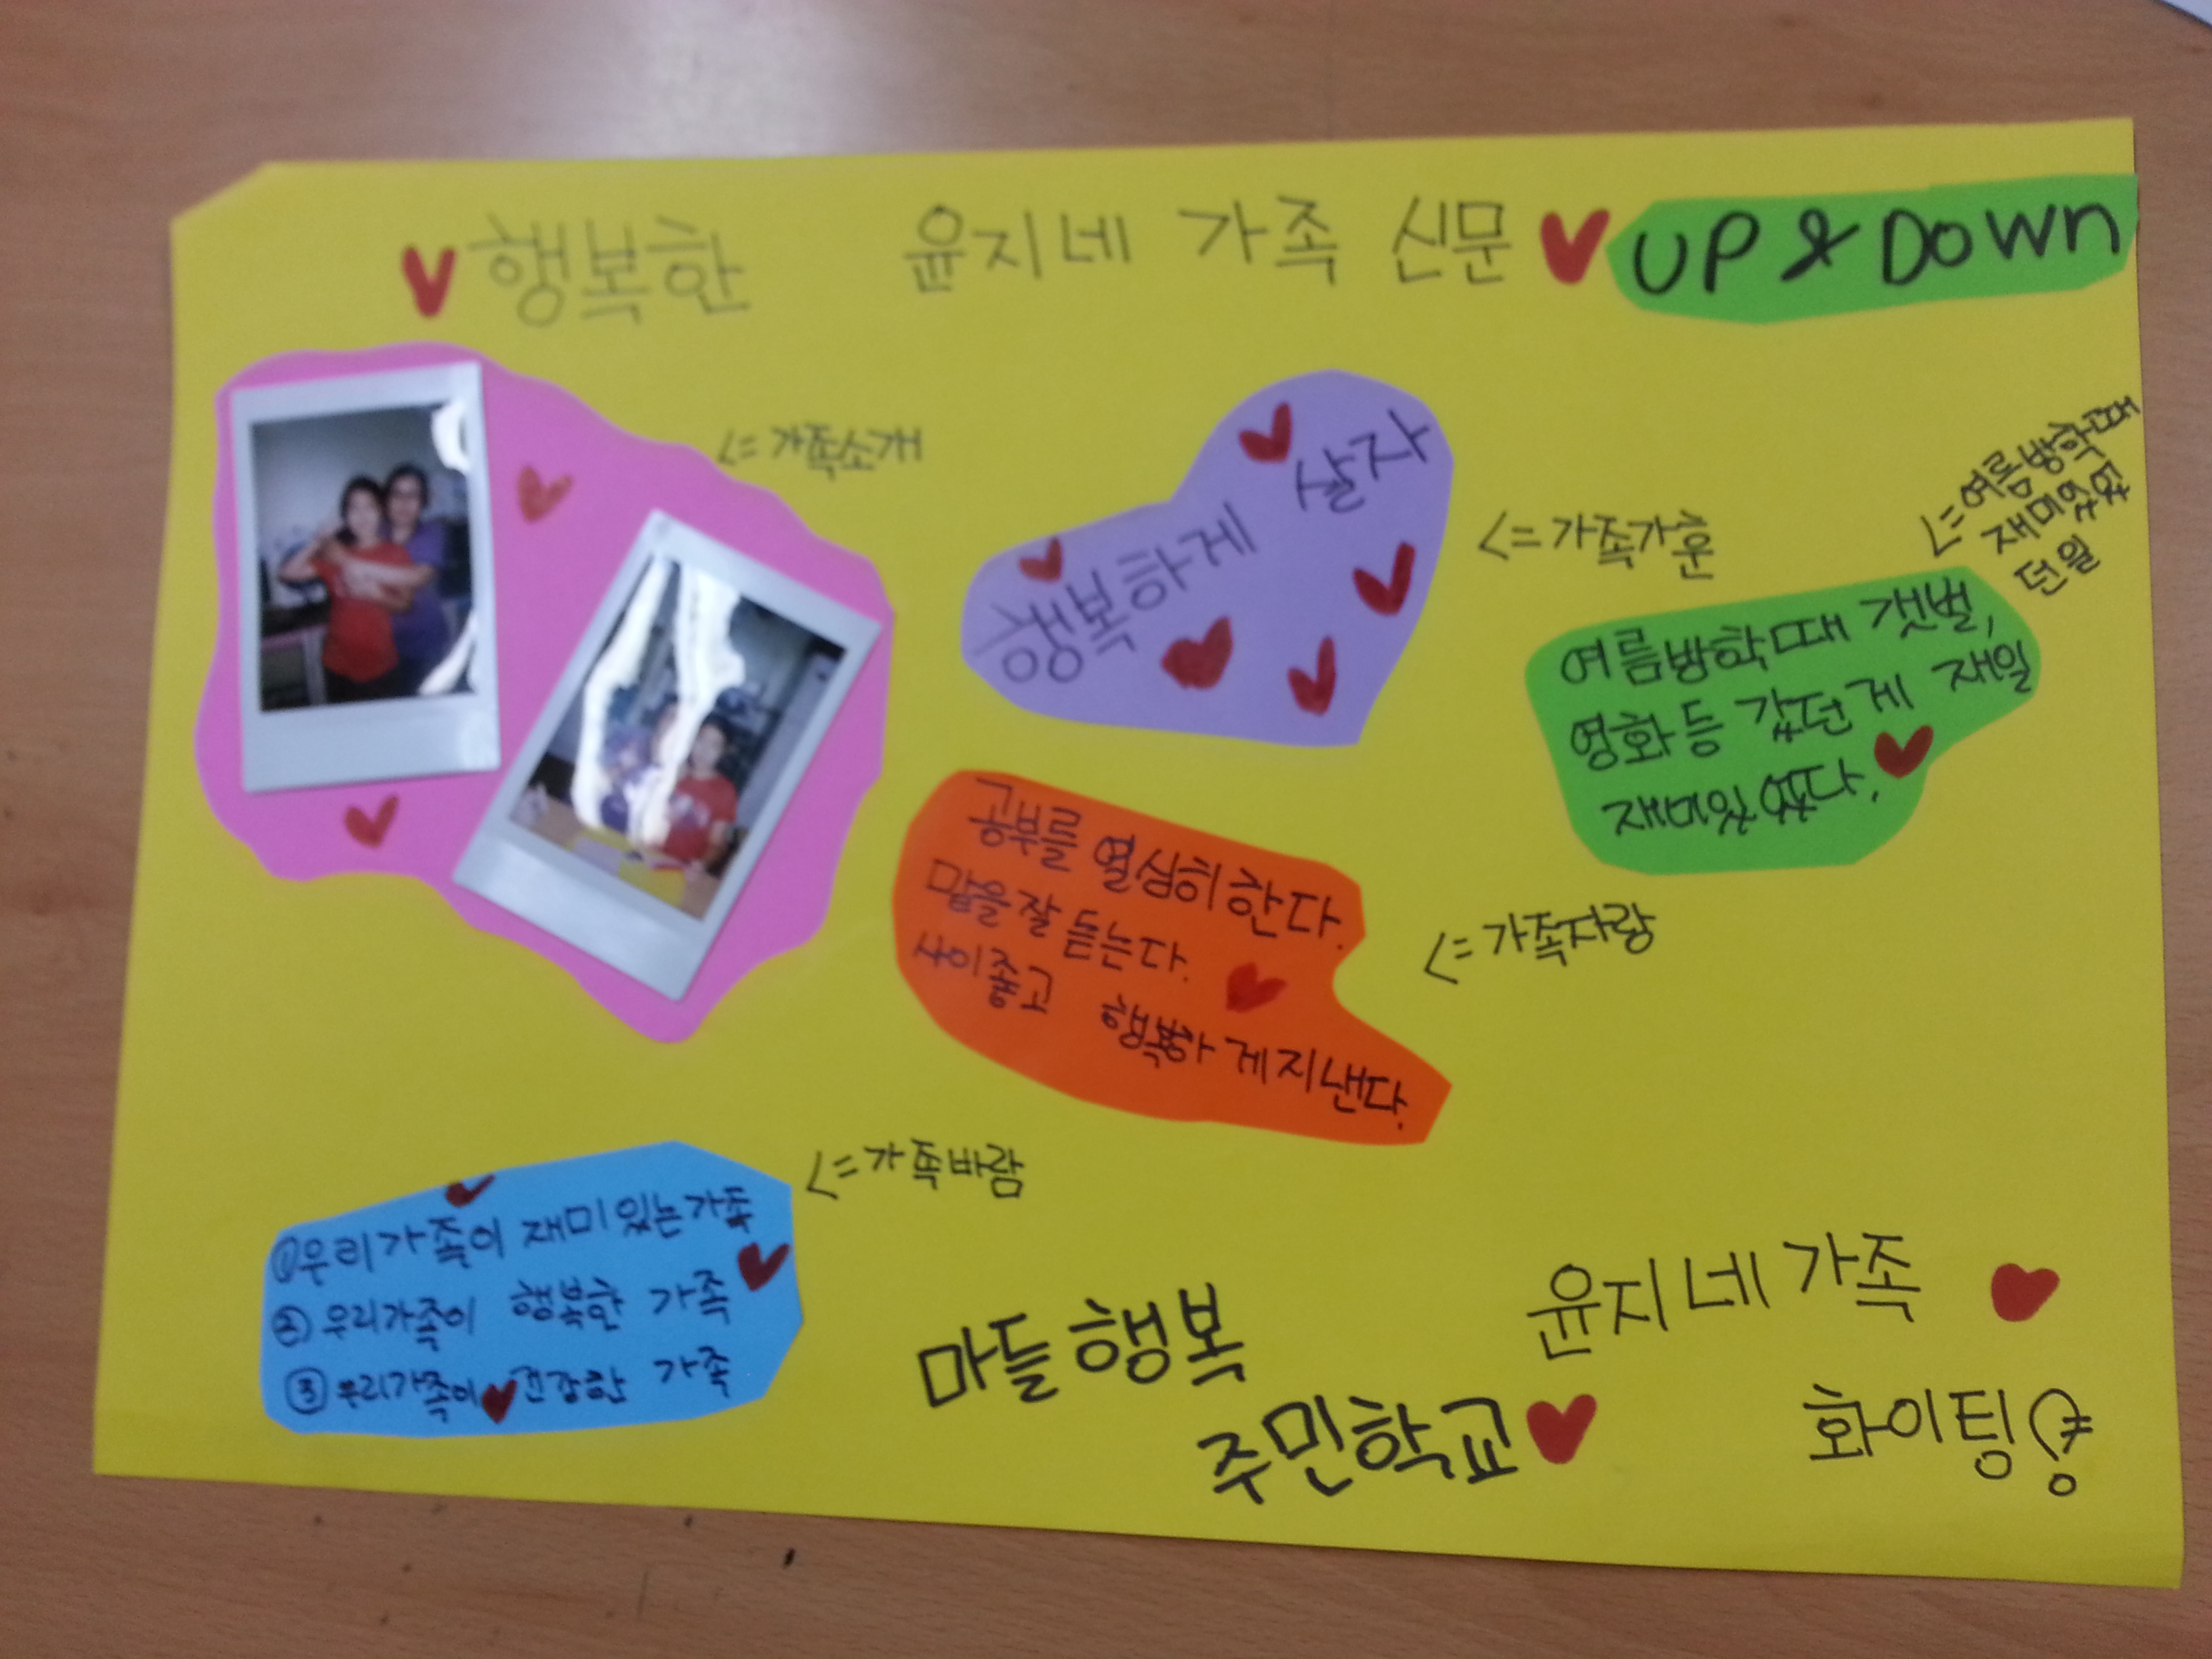 행복한 윤지네 가족 신문 UP & DOWN
<= 가족소개
행복하게 살자
<= 가족가훈
<= 여름방학때
재미있었
던일
여름방학때 갯벌,
영화등 갔던게 재일
재미있었다.
공부를 열심히 한다.
말을 잘 듣는다.
사이좋고 행복하게지낸다.
<= 가족자랑
<= 가족바람
①우리가족이 재미있는가족
② 우리가족이 행복한 가족
③ 우리가족이 건강한 가족
마들행복
주민학교
윤지네 가족
화이팅